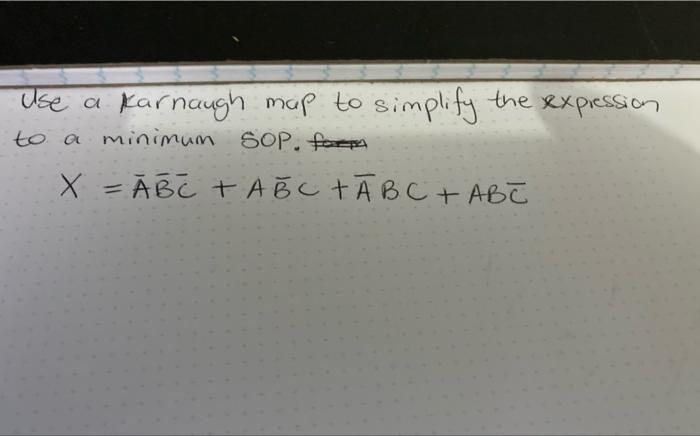 Use a Karnaugh map to simplify the expression
to a minimum SOP. form
X = A̅B̅C̅ + AB̅C + A̅BC + ABC̅